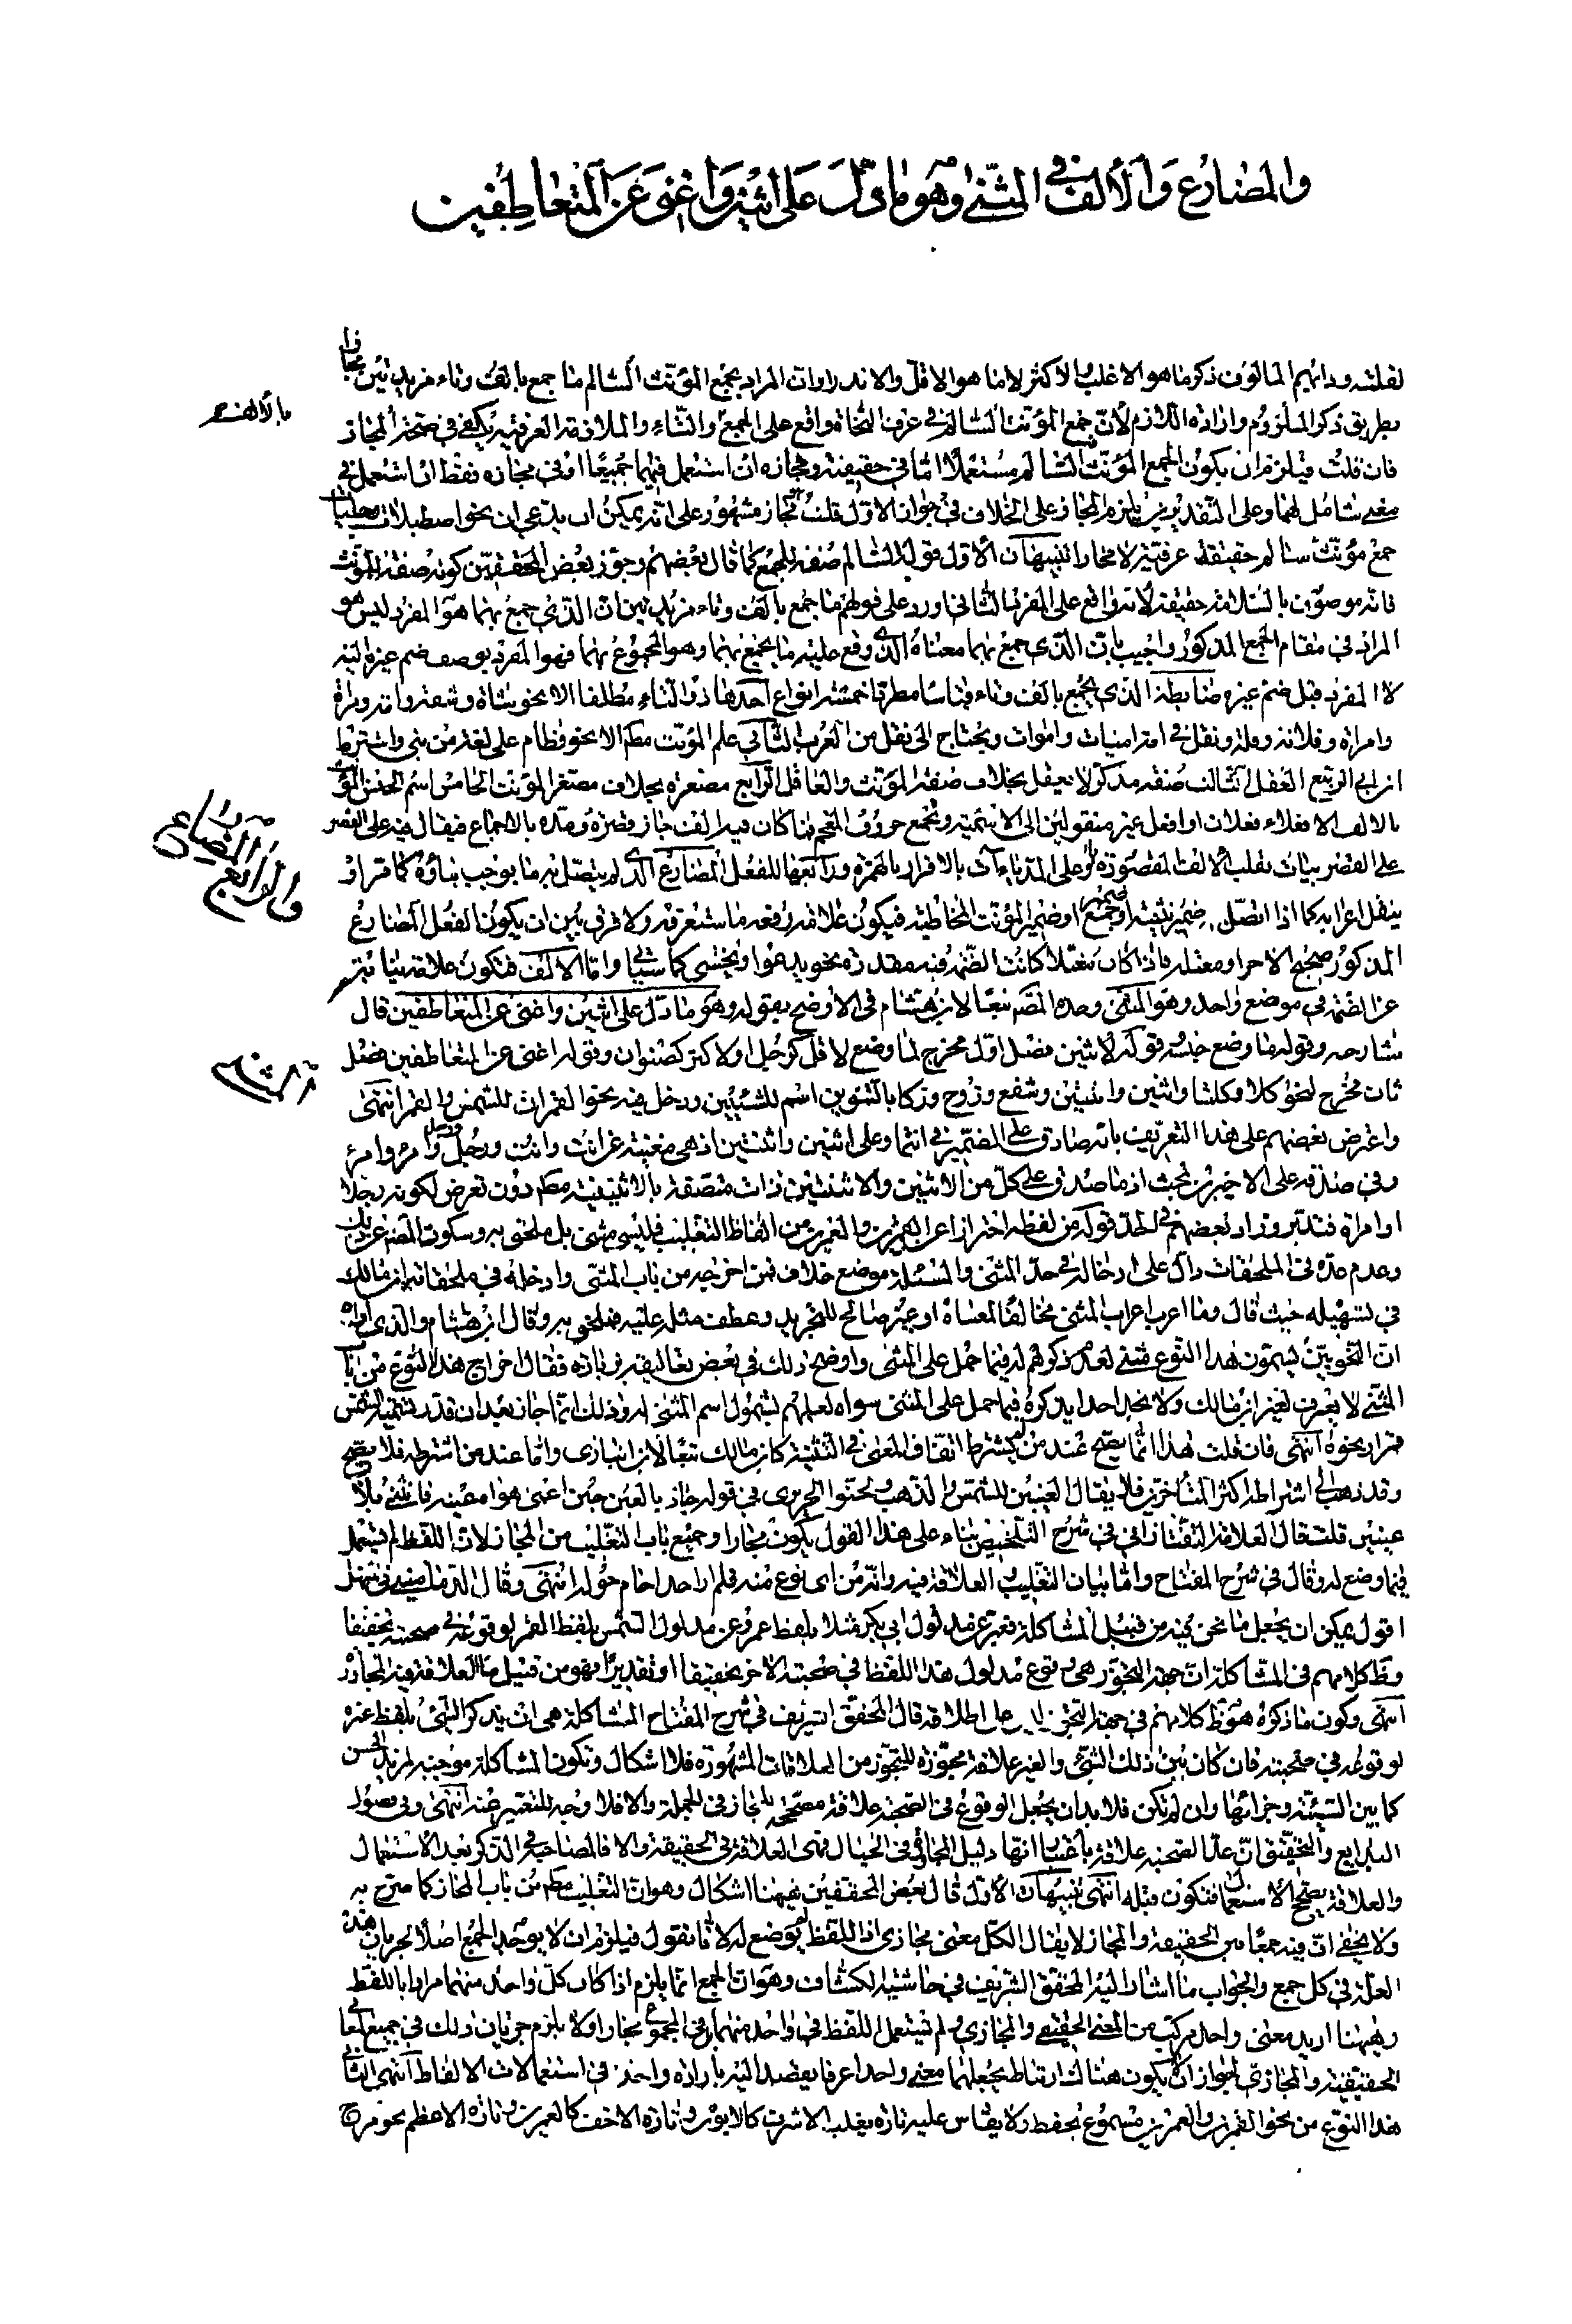 والمضارع والألف في المثنى وهو ما دل على اثنين واغنى عن المتعاطفين
لقلته ودابهم المالوف ذكر ما هو الاغلب والاكثر لا ما هو الاقل والاندر او ان المراد بجمع المؤنث السالم ما جمع بالف وتاء مزيدتين مجازا
بطريق ذكر الملزوم وارادة اللازم لأن جمع المؤنث السالم في عرف النحاة واقع على الجمع والتاء والملازمة العرفية يكفي في صحة المجاز
بالألف
فان قلت فيلزم ان يكون الجمع المؤنث السالم مستعملا اما في حقيقته ومجازه ان استعمل فيهما جميعا او في مجازه فقط ان استعمل في
معنى شامل لهما وعلى التقديرين يلزم المجاز على الخلاف في جواز الاول قلت مجاز مشهور على انه يمكن ان يدعى ان نحو اصطبلات
جمع مؤنث سالم حقيقة عرفية لا مجازا تنبيهان الأول قوله السالم صفة للجمع كما قال بعضهم وجوز بعض المحققين كونه صفة المؤنث
فانه موصوف بالسلامة حقيقة لانه واقع على المفرد الثاني اورد على قولهم ما جمع بالف وتاء مزيدتين ان الذي جمع بهما هو المفرد ليس هو
المراد في مقام الجمع المذكور واجيب بان الذي جمع بهما معناه الذي وقع عليه ما يجمع بهما وهو المجموع بهما فهو المفرد بوصف ضم غيره اليه
لا المفرد قبل ضم غيره ضابطة الذي يجمع بالف وتاء قياسا مطردا خمسة انواع احدها ذو التاء مطلقا الا نحو شاة وشفة وامة ومراة
وامراة وفلانة وقلة ونقل في امة اميات واموات ويحتاج الى نقل من العرب الثاني علم المؤنث مطم الا نحو قطام على لغة من بنى واشترط
ابن ابي الربيع العقل الثالث صفة مذكر لا يعقل بخلاف صفة المؤنث والعاقل الرابع مصغره بخلاف مصغر المؤنث الخامس اسم الجنس المؤنث
بالالف الا فعلاء فعلان او افعل غير منقولين الى الاسمية وتجمع حروف المعجم فما كان فيه الف جاز قصره ومده بالاجماع فيقال فيه على القصر
على القصر بيات بقلب الألف المقصورة وعلى المد باءآت بالاقرار بالهمزة ورابعها للفعل المضارع الذي لم يتصل به ما يوجب بناؤه كما مر او
والرابع المضارع
ينقل اعرابه كما اذا اتصل به ضمير تثنية او ضمير جمع او ضمير المؤنث المخاطبة فيكون علامة رفعه ما ستعرفه ولا فرق بين ان يكون الفعل المضارع
المذكور صحيح الاخر او معتله فاذا كان معتلا كانت الضمة فيه مقدرة نحو يدعوا ويخشى كما سياتي واما الالف فتكون علامة نيابة
عن الضمة في موضع واحد وهو المثنى وحده المصم تبعا لابن هشام في الاوضح بقوله وهو ما دل على اثنين واغنى عن المتعاطفين قال
شارحه وقوله ما وضع جنس وقوله لاثنين فصل اول مخرج لما وضع لاقل كرجل او لاكثر كصنوان وقوله اغنى عن المتعاطفين فصل
ثان مخرج لنحو كلا وكلتا واثنين واثنتين وشفع وزوج وزكا بالتنوين اسم للشيئين ودخل فيه نحو القمران للشمس والقمر انتهى
واعترض بعضهم على هذا التعريف بانه صادق على الضمير في انتما وعلى اثنين واثنتين اذ هي مغنية عن انت وانت ورجل ورجل وامرء وامرء
وفي صدقه على الاخيرين بحث اذ ما صدق على كل من الاثنين والاثنتين ذات متصفة بالاثنينية مطم دون تعرض لكونه رجلا
او امراة فتدبر وزاد بعضهم في الحد قوله من لفظه احترازا عن العمرين والقمرين من الفاظ التغليب فليس بمثنى بل ملحق به وسكوت المصم عن ذلك
وعدم عده في الملحقات دال على ادخاله في حد المثنى والمسئلة موضع خلاف فمن اخرجه من باب المثنى وادخله في ملحقاته ابن مالك
في تسهيله حيث قال وما اعرب اعراب المثنى مخالفا لمعناه او غير صالح للتجريد وعطف مثله عليه فملحق به وقال ابن هشام والذي اراه
ان النحويين يسمون هذا النوع مثنى لعدم ذكرهم له فيما حمل على المثنى واوضح ذلك في بعض تعاليقه بزيادة فقال اخراج هذا النوع من باب
المثنى لا يعرف لغير ابن مالك ولا نجد احدا يذكره فيما حمل على المثنى سواه لعلمهم بشمول اسم المثنى له وذلك انما جاز بعد ان قدر تسمية الشمس
قمرا ونحوه انتهى فان قلت هذا انما يصح عند من لم يشترط اتفاق المعنى في التثنية كابن مالك تبعا لابن انباري واما عند من اشترطه فلا يصح
وقد ذهب الى اشتراطه اكثر المتأخرين فلا يقال العينين للشمس والذهب ولحنوا الحريري في قوله جاد بالعين حين اعمى هواه عينه فانثنى بلا
عينين قلت قال العلامة التفتازاني في شرح التلخيص بناء على هذا القول يكون مجازا وجميع باب التغليب من المجاز لان اللفظ لم يستعمل
فيما وضع له وقال في شرح المفتاح واما بيان التغليب والعلاقة فيه وانه من اى نوع منه فلم ار احدا حام حوله انتهى وقال الدماميني في شرح التسهيل
اقول يمكن ان يجعل ما نحن فيه من قبيل المشاكلة فعبر عن مدلول ابي بكر مثلا بلفظ عمر وعن مدلول الشمس بلفظ القمر لوقوعه في صحبته تحقيقا
وظ كلامهم في المشاكلة ان جهة التجوز هي وقوع مدلول هذا اللفظ في صحبة الاخر تحقيقا او تقديرا فهو من قبيل ما العلاقة فيه المجاورة
انتهى وكون ما ذكره هو ظ كلامهم في جهة التجوز ليس على اطلاقه قال المحقق الشريف في شرح المفتاح المشاكلة هي ان يذكر الشئ بلفظ غيره
لوقوعه في صحبته فان كان بين ذلك الشئ والغير علاقة مجوزة للتجوز من العلاقات المشهورة فلا اشكال وتكون المشاكلة موجبة لمزيد الحسن
كما بين السيئة وجزائها وان لم تكن فلا بد ان يجعل الوقوع في الصحبة علاقة مصححة للمجاز في الجملة والا فلا وجه للتعبير عنه انتهى وفي فصول
البدايع والتحقيق ان عد الصحبة علاقة باعتبار انها دليل المجاورة في الخيال فهى العلاقة في الحقيقة والا فالمصاحبة في الذكر بعد الاستعمال
والعلاقة يصحح الاستعمال فتكون قبله انتهى تنبيهات الأول قال بعض المحققين ههنا اشكال وهو ان التغليب مطم من باب المجاز كما صرح به
ولا يخفى ان فيه جمعا بين الحقيقة والمجاز لا يقال الكل معنى مجازي اذ اللفظ لم يوضع له لانا نقول فيلزم ان لا يوجد الجمع اصلا لجريان هذه
العلة في كل جمع والجواب ما اشار اليه المحقق الشريف في حاشية الكشاف وهو ان الجمع انما يلزم اذا كان كل واحد منهما مرادا باللفظ
وههنا اريد معنى واحد مركب من المعنى الحقيقي والمجازي ولم يستعمل اللفظ في واحد منهما بل في المجموع مجازا ولا يلزم جريان ذلك في جميع المعاني
الحقيقية والمجازية لجواز ان لا يكون هناك ارتباط يجعلهما معنى واحدا عرفا يقصد اليه بارادة واحدة في استعمالات الالفاظ انتهى الثاني
هذا النوع من نحو القمرين والعمرين مسموع يحفظ ولا يقاس عليه تارة يغلب الاشرف كالابوين وتارة الاخف كالعمرين وتارة الاعظم نحو مرج